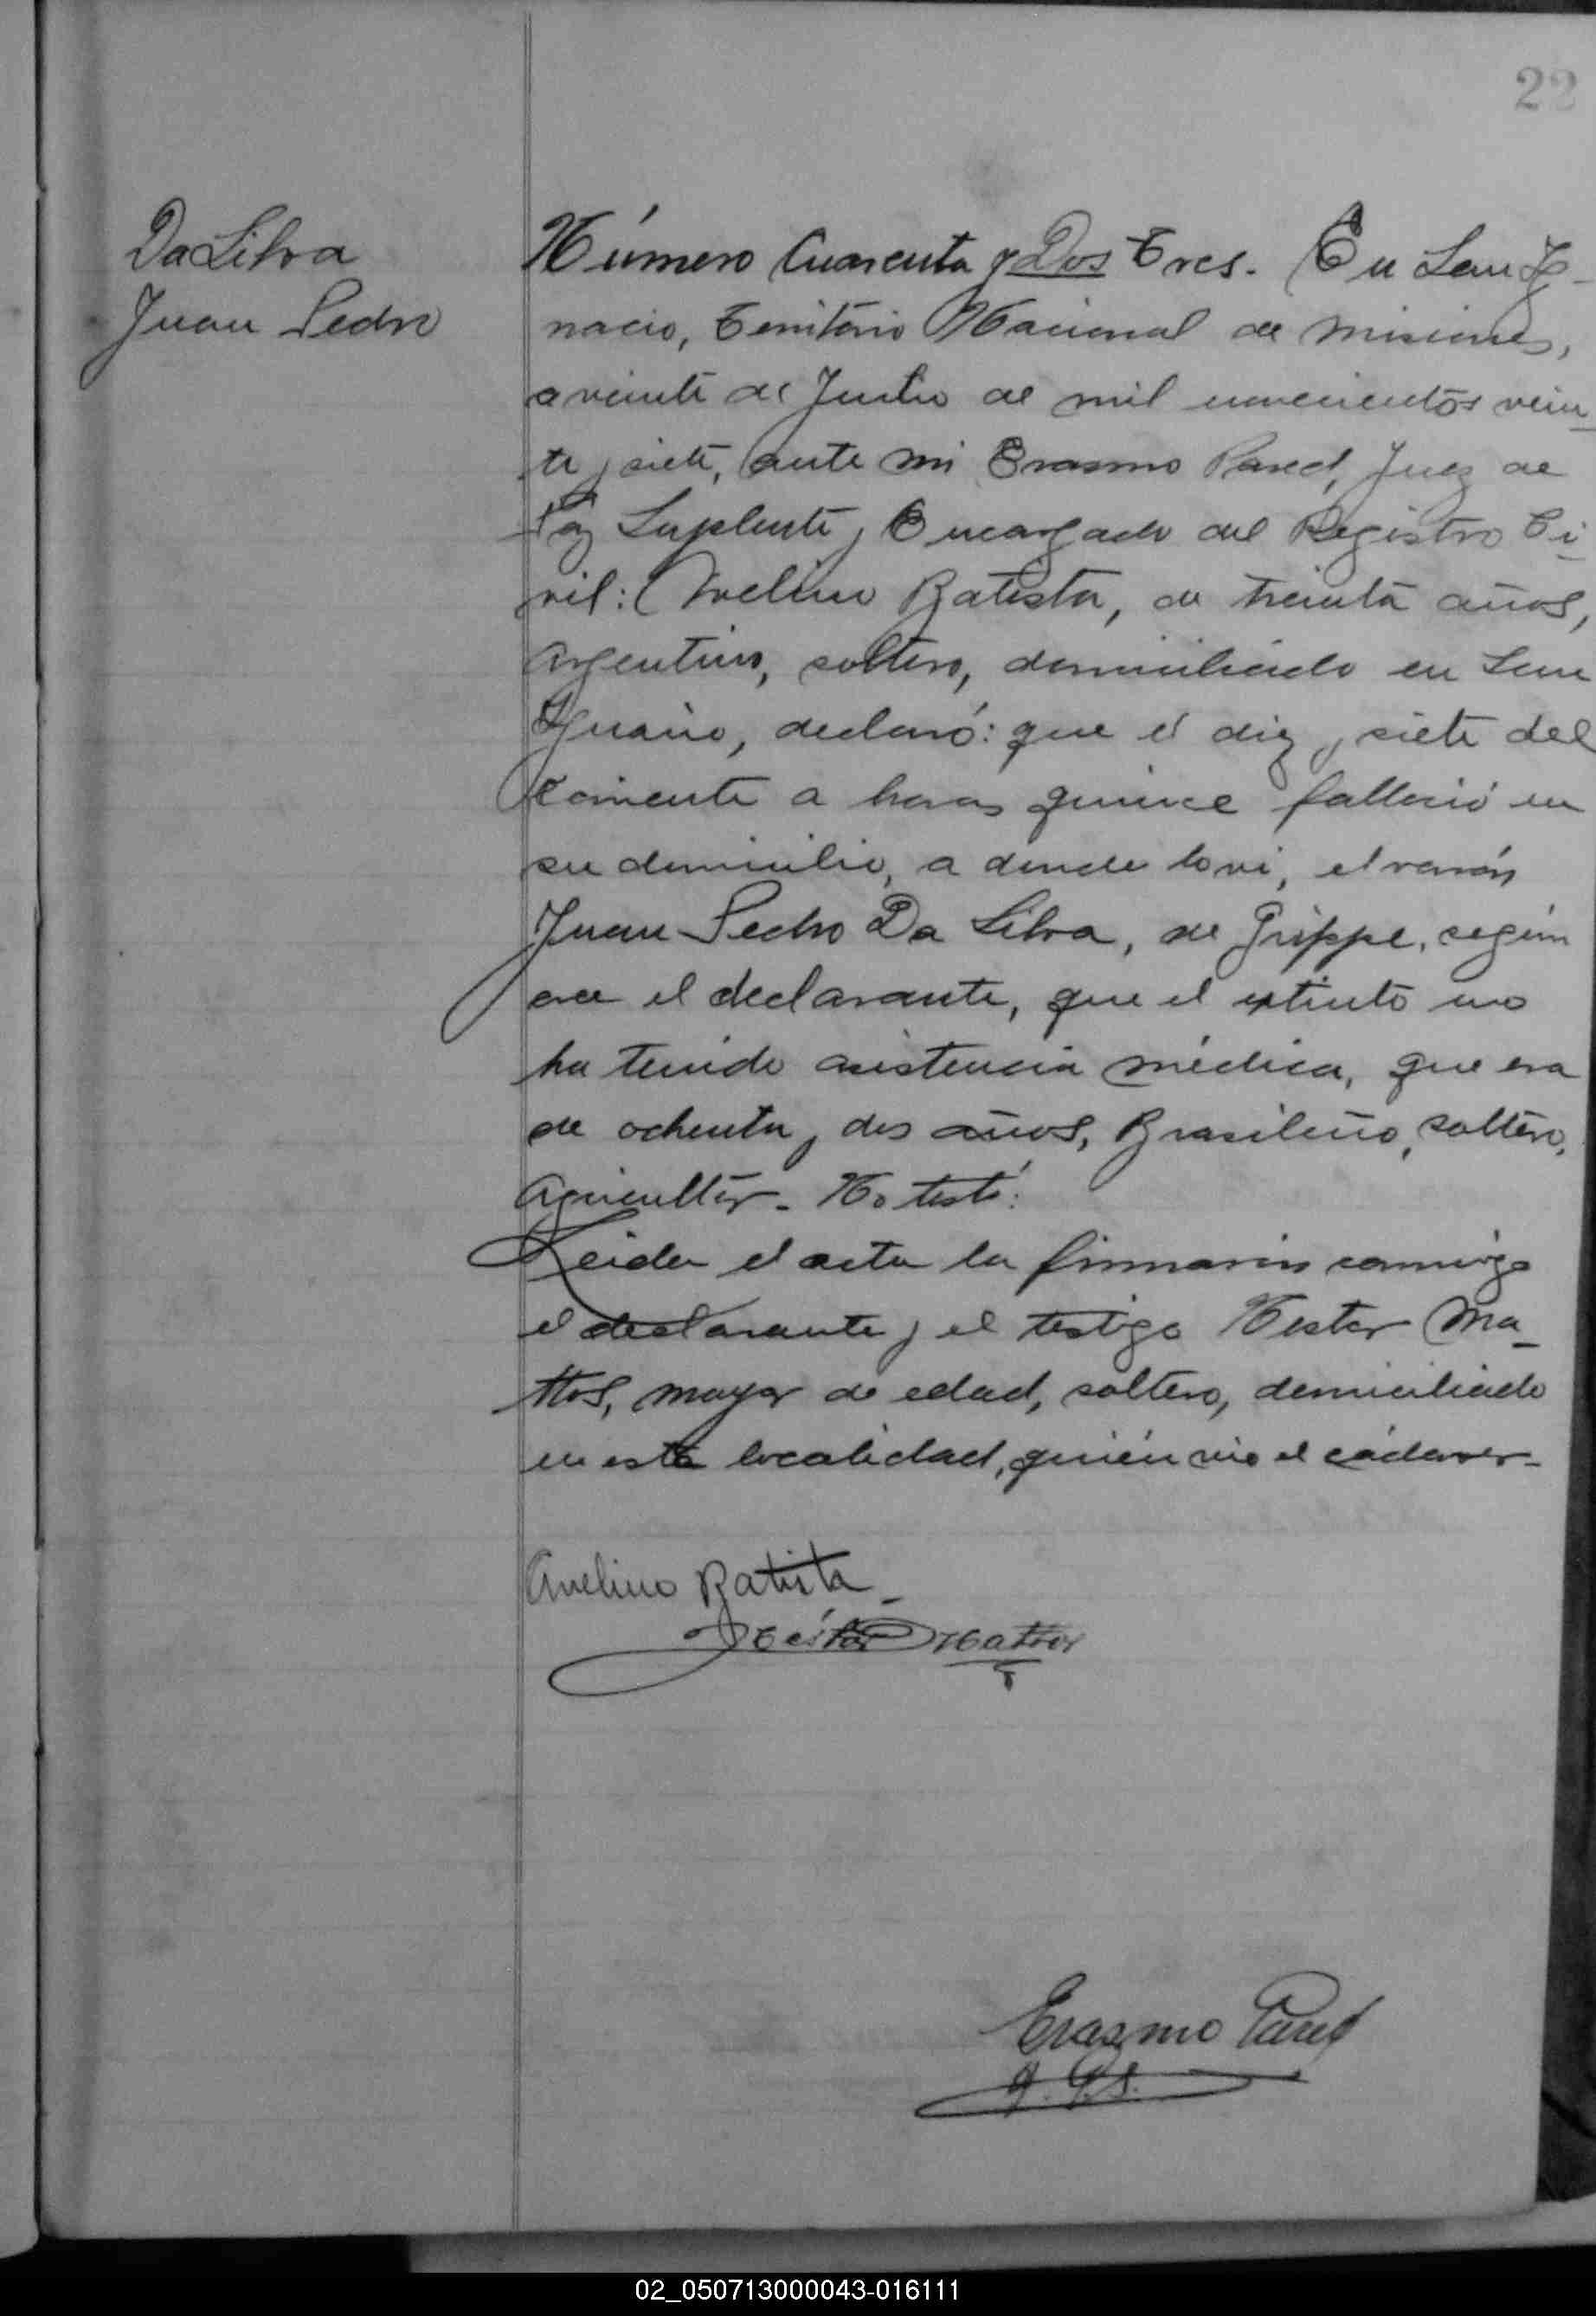 22
Da Silva
Juan Pedro
Número Cuarenta y Dos Tres. En San Ig-
nacio, Territorio Nacional de Misiones,
a veinte de Junio de mil novecientos vein_
te y siete, ante mi Erasmo Pared, Juez de
Paz Suplente y Encargado del Registro Ci_
vil: Avelino Batista, de treinta años,
Argentino, soltero, domiciliado en San
Ignacio, declaró: que el diez y siete del
corriente a horas quince falleció en
su domicilio, a donde lo vi, el varón
Juan Pedro Da Silva, de Grippe, según
cree el declarante, que el extinto no
ha tenido asistencia médica, que era
de ochenta y dos años, Brasileño, soltero,
Agricultor. No testó:
Leida el acta la firmaron conmigo
el declarante y el testigo Nestor Ma_
ttos, mayor de edad, soltero, domiciliado
en esta localidad, quién vio el cádaver-
Avelino Batista_
Néstor Mattos
Erasmo Pared
02_050713000043-016111